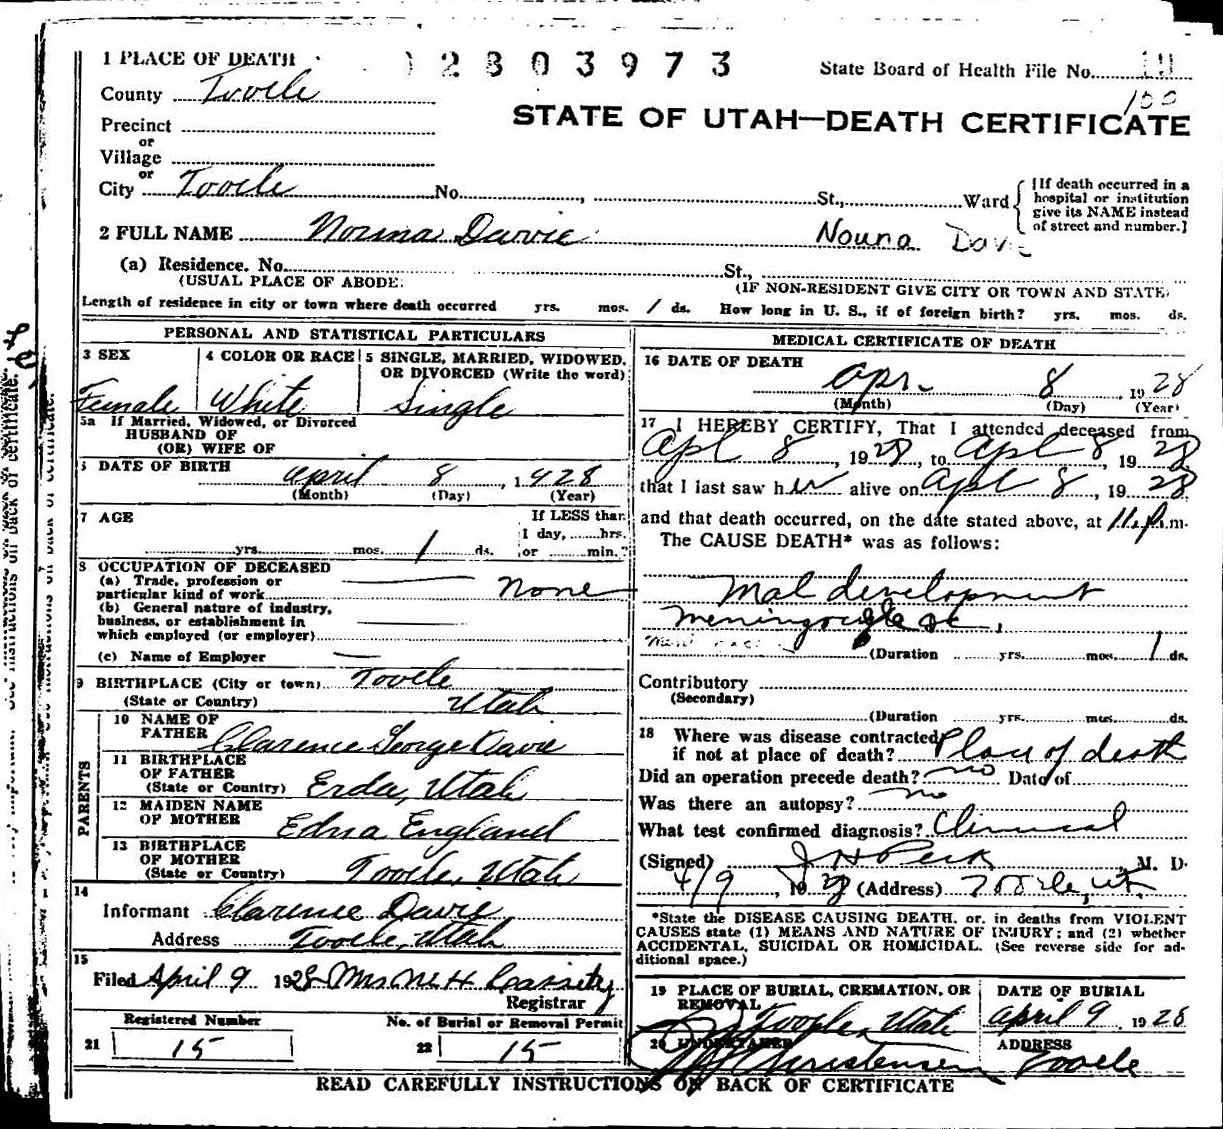 1 PLACE OF DEATH
2803973
State Board of Health File No.
100
County Tooele
STATE OF UTAH—DEATH CERTIFICATE
Precinct
or
Village
or
City Tooele No. , St., Ward
[If death occurred in a hospital or institution give its NAME instead of street and number.]
2 FULL NAME Norma Davie Nouna Davie
(a) Residence. No. St.,
(USUAL PLACE OF ABODE. (IF NON-RESIDENT GIVE CITY OR TOWN AND STATE)
Length of residence in city or town where death occurred yrs. mos. 1 ds. How long in U. S., if of foreign birth? yrs. mos. ds.
PERSONAL AND STATISTICAL PARTICULARS
3 SEX Female
4 COLOR OR RACE White
5 SINGLE, MARRIED, WIDOWED, OR DIVORCED (Write the word) Single
5a If Married, Widowed, or Divorced
HUSBAND OF
(OR) WIFE OF
6 DATE OF BIRTH April 8, 1928
(Month) (Day) (Year)
7 AGE
yrs. mos. 1 ds.
If LESS than
1 day, hrs.
or min.
8 OCCUPATION OF DECEASED
(a) Trade, profession or
particular kind of work None
(b) General nature of industry,
business, or establishment in
which employed (or employer)
(c) Name of Employer
9 BIRTHPLACE (City or town) Tooele
(State or Country) Utah
PARENTS
10 NAME OF
FATHER Clarence George Davie
11 BIRTHPLACE
OF FATHER
(State or Country) Erda, Utah
12 MAIDEN NAME
OF MOTHER Edna England
13 BIRTHPLACE
OF MOTHER
(State or Country) Tooele, Utah
14
Informant Clarence Davie
Address Tooele, Utah
15
Filed April 9 1928 Mrs
Registrar
Registered Number
21 15
No. of Burial or Removal Permit
22 15
MEDICAL CERTIFICATE OF DEATH
16 DATE OF DEATH
Apr. 8, 1928
(Month) (Day) (Year)
17 I HEREBY CERTIFY, That I attended deceased from
Apl 8, 1928, to Apl 8, 1928
that I last saw her alive on Apl 8, 1928
and that death occurred, on the date stated above, at 11 p.m.
The CAUSE DEATH* was as follows:
Mal development
(Duration yrs. mos. 1 ds.
Contributory
(Secondary)
(Duration yrs. mos. ds.
18 Where was disease contracted
if not at place of death? Place of death
Did an operation precede death? no Date of
Was there an autopsy? no
What test confirmed diagnosis? Clinical
(Signed) J H Peck M. D.
4/9, 1928 (Address) Tooele, Ut
*State the DISEASE CAUSING DEATH, or, in deaths from VIOLENT
CAUSES state (1) MEANS AND NATURE OF INJURY; and (2) whether
ACCIDENTAL, SUICIDAL OR HOMICIDAL. (See reverse side for ad-
ditional space.)
19 PLACE OF BURIAL, CREMATION, OR
REMOVAL
Tooele, Utah
DATE OF BURIAL
April 9 1928
20 UNDERTAKER
Christensen
ADDRESS
Tooele
READ CAREFULLY INSTRUCTIONS ON BACK OF CERTIFICATE